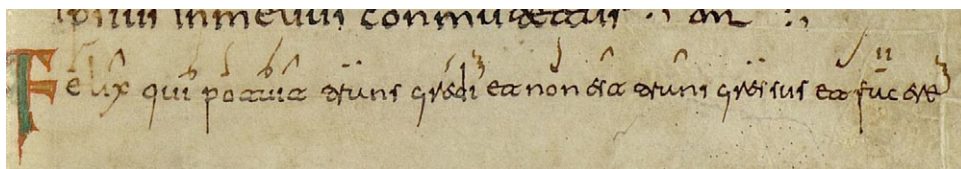 ipsius in melius conmutetur
Felix qui potuit trans gredi et non est trans gressus et facere